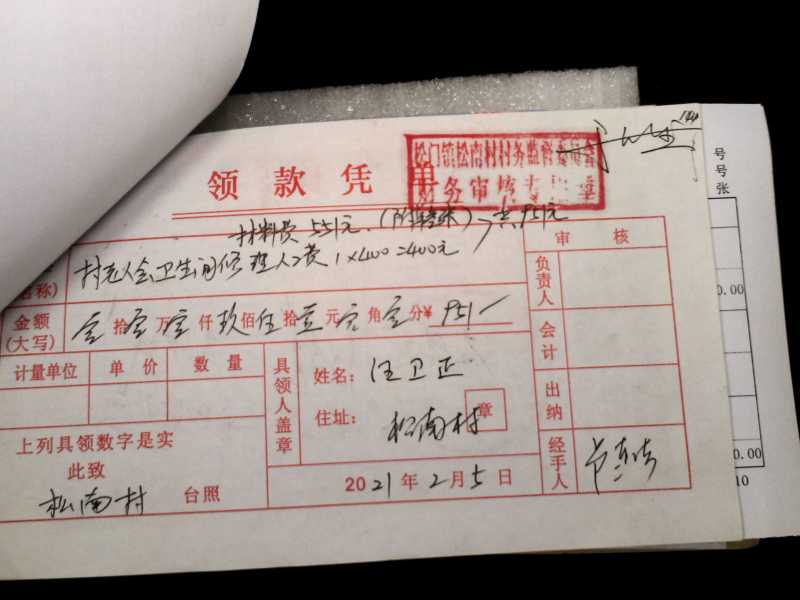 领款凭单
松门镇松南村村务监督委员会
财务审核专用章
号
号
张
材料费 551元.(附清单) 共951元
村老人会卫生间修理人工费 1×400=400元
名称)
审 核
负责人
会计
出纳
经手人
金额
(大写)
零拾零万零仟玖佰伍拾壹元零角零分¥ 951/
计量单位 单 价 数 量
具领人盖章
姓名: 汪卫正
住址: 松南村
章
上列具领数字是实
此致
松南村 台照
2021年2月5日
0.00
0.00
10